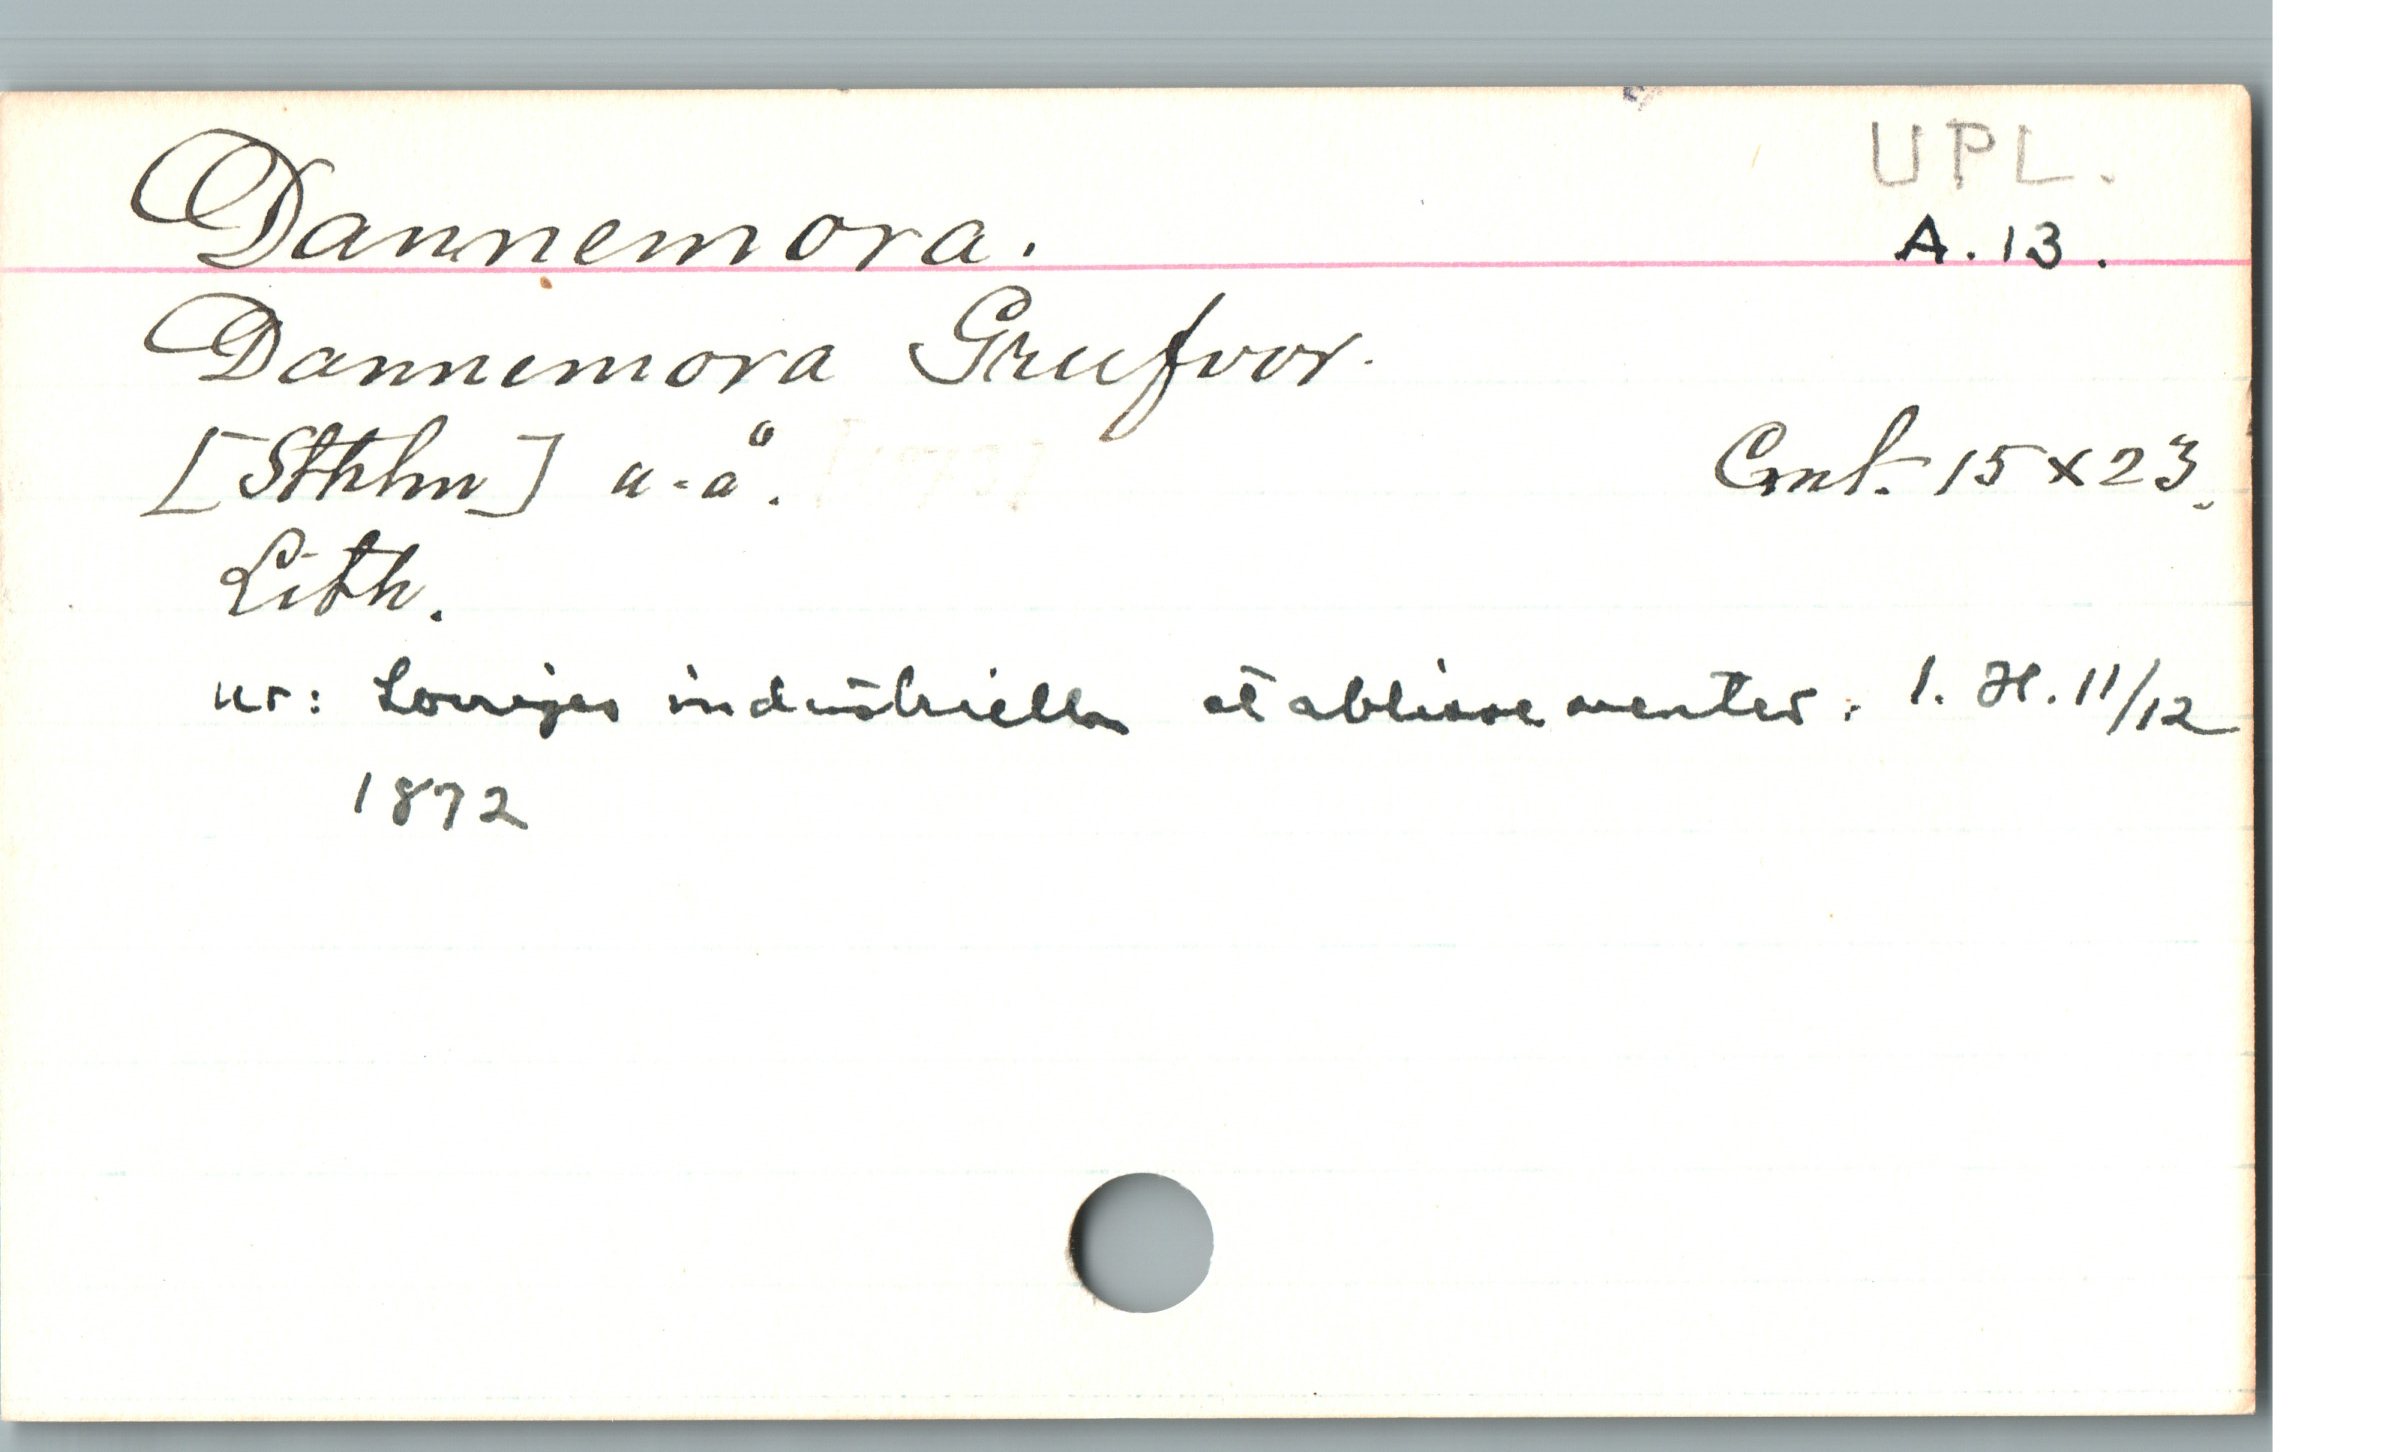 UPL.
Dannemora.
A.13.
Dannemora Grufvor.
[Sthlm] u.å. Cmt. 15x23.
Lith.
ur: Sveriges industriella etablissementer. 1. H. 11/12
1872